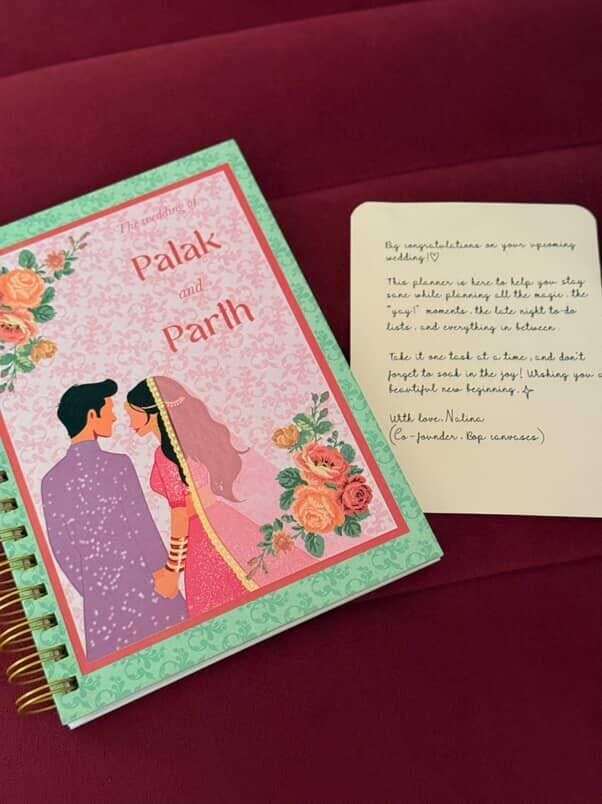 The wedding of
Palak
and
Parth
Big congratulations on your upcoming
wedding!♡
This planner is here to help you stay
sane while planning all the magic, the
"yay!" moments, the late night to-do
lists, and everything in between.
Take it one task at a time, and don't
forget to soak in the joy! Wishing you a
beautiful new beginning.
With love, Nalina
(Co-founder, Bop canvases)